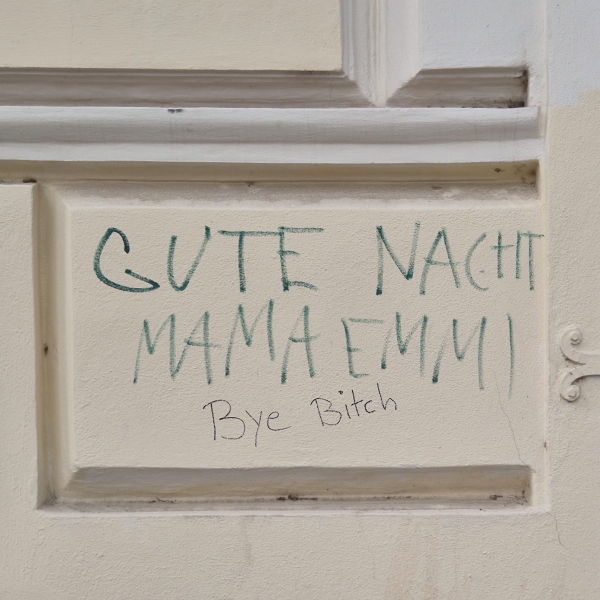 GUTE NACHT
MAMA EMMI
Bye Bitch